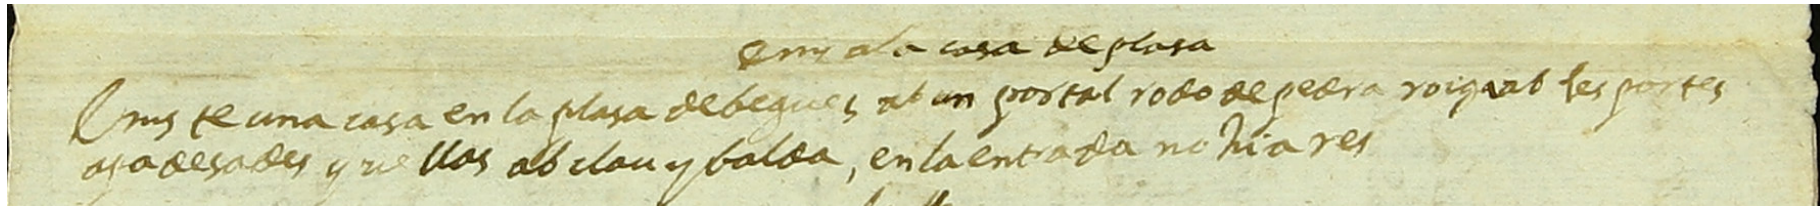 E mes a la casa de plasa
E mes te una casa en la plasa de begues ab un portal rodo de pedra roiga ab les portes
y vellas ab clau y balda, en la entrada no hi a res